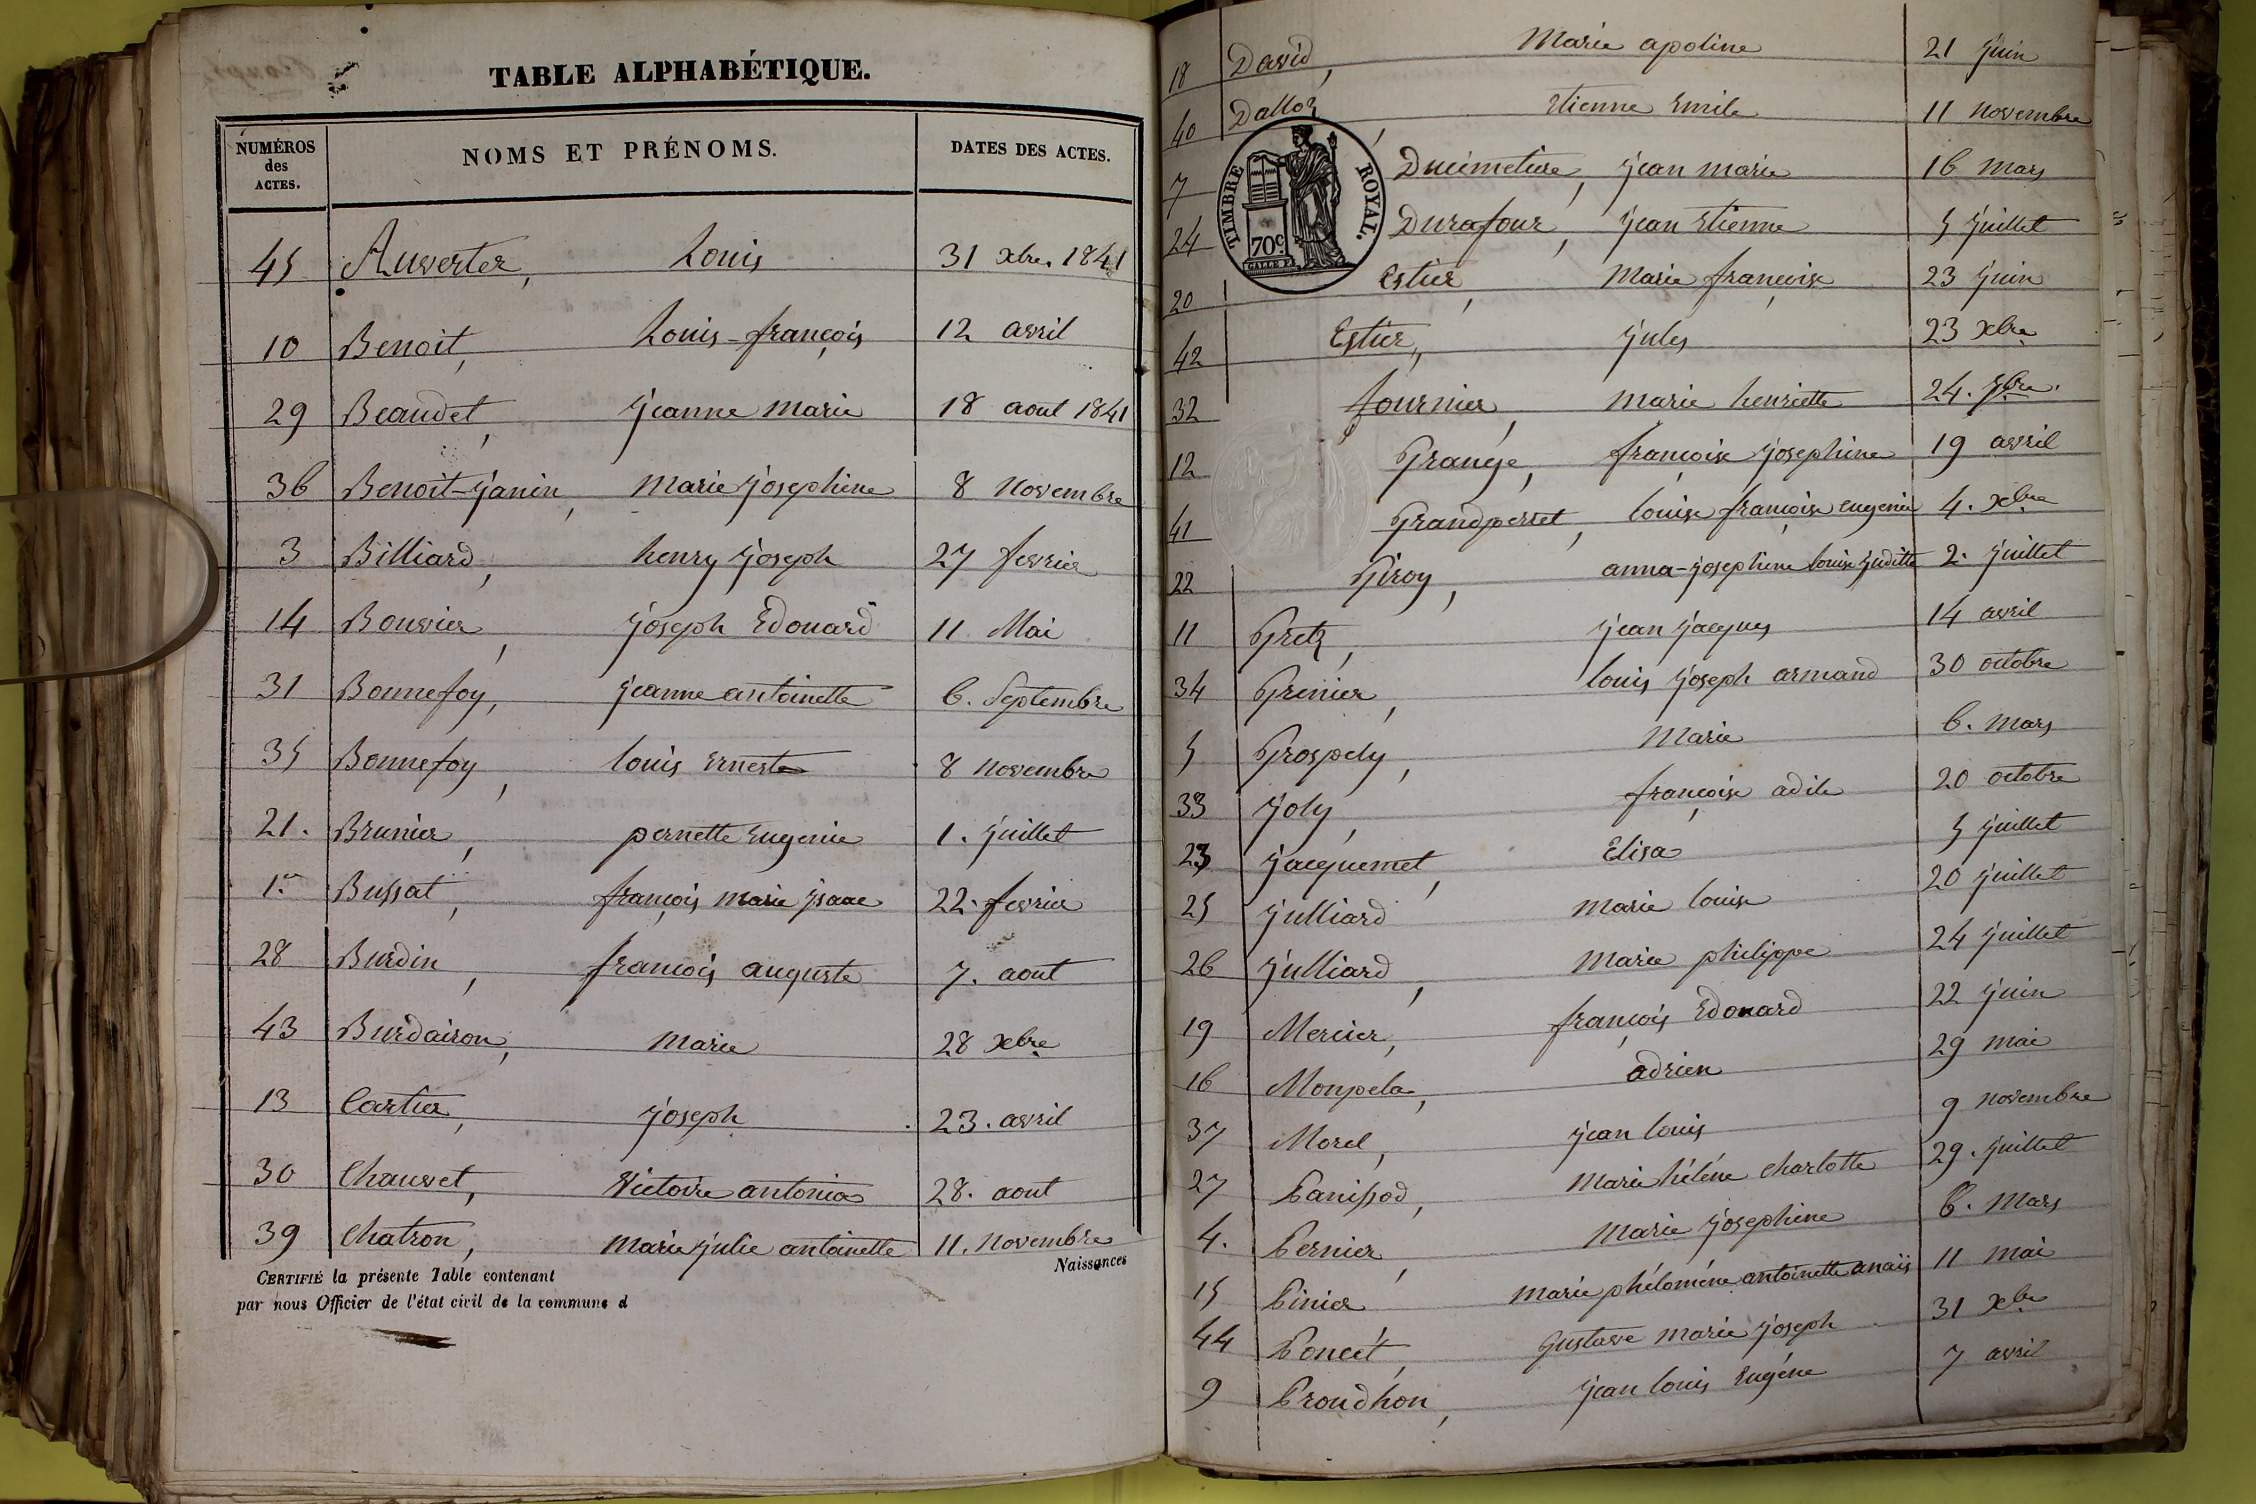 TABLE ALPHABÉTIQUE.
NUMÉROS des ACTES. NOMS ET PRÉNOMS. DATES DES ACTES.
45 Auverter, Louis 31 Xbre. 1841
10 Benoit, Louis-françois 12 avril
29 Beaudet, jeanne marie 18 aout 1841
36 Benoit-janin, marie josephine 8 Novembre
3 Billiard, henry joseph 27 fevrier
14 Bouvier, joseph Edouard 11 Mai
31 Bonnefoy, jeanne antoinette 6. Septembre
35 Bonnefoy, louis Erneste 8 novembre
21. Brunier, pernette Eugenie 1. juillet
1.er Bussat, françois marie jsaac 22. fevrier
28 Burdin, francois auguste 7. aout
43 Burdairon, Marie 28 Xbre
13 Cartier, joseph 23. avril
30 Chauvet, Victoire antonia 28. aout
39 Chatron, Marie julie antoinette 11. novembre
CERTIFIÉ la présente Table contenant Naissances
par nous Officier de l'état civil de la commune d
18 David, Marie apoline 21 juin
40 Dalloz, Etienne Emile 11 novembre
7 Ducimetiere, jean marie 16 mars
24 Durafour, jean Etienne 5 juillet
TIMBRE ROYAL.
70c
20 Estier, Marie françoise 23 juin
42 Estier, jules 23 Xbre
32 fournier, marie henriette 24. 7bre.
12 Grangé, françoise josephine 19 avril
41 Grandperret, louise françoise eugenie 4. Xbre
22 Giroy, anna-josephine louise juditte 2. juillet
11 Gretz, jean jacques 14 avril
34 Grenier, louis joseph armand 30 octobre
5 Grospely, Marie 6. mars
33 joly, françoise adile 20 octobre
23 jacquemet, Elisa 5 juillet
25 julliard marie louise 20 juillet
26 julliard, Marie philippe 24 juillet
19 Mercier, françois Edouard 22 juin
16 Monpela, adrien 29 mai
37 Morel, jean louis 9 novembre
27 Panissod, Marie hélène charlotte 29. juillet
4. Pernier, Marie josephine 6. Mars
15 Pinier marie phéloméne antoinette anaïs 11 mai
44 Poncet, Gustave marie joseph 31 Xbre
9 Proudhon, jean louis Eugéne 7 avril